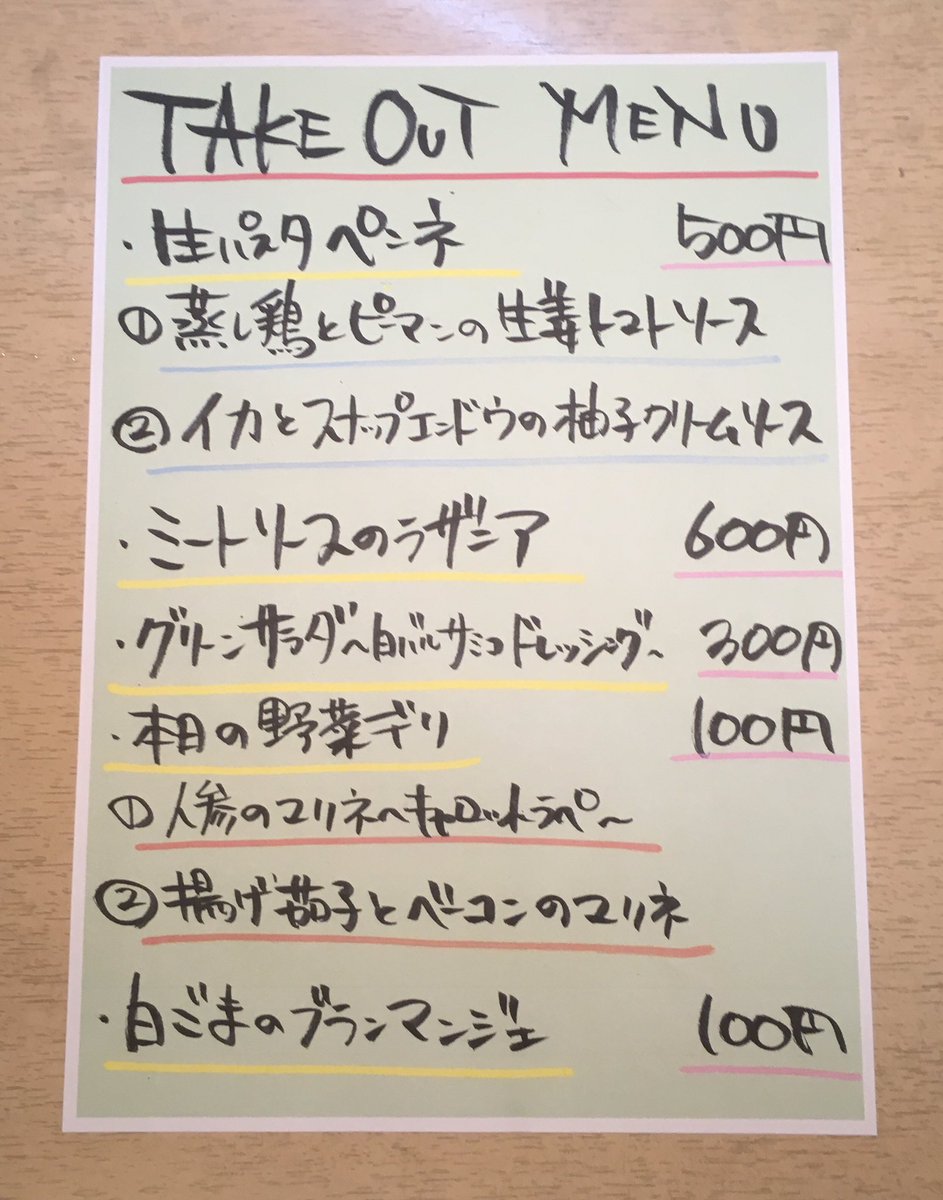 TAKE OUT MENU
・生パスタ ペンネ 500円
① 蒸し鶏とピーマンの生姜トマトソース
② イカとスナップエンドウの柚子クリームソース
・ミートソースのラザニア 600円
・グリーンサラダ〜白バルサミコドレッシング〜 300円
・本日の野菜デリ 100円
① 人参のマリネ〜キャロットラペ〜
② 揚げ茄子とベーコンのマリネ
・白ごまのブランマンジェ 100円